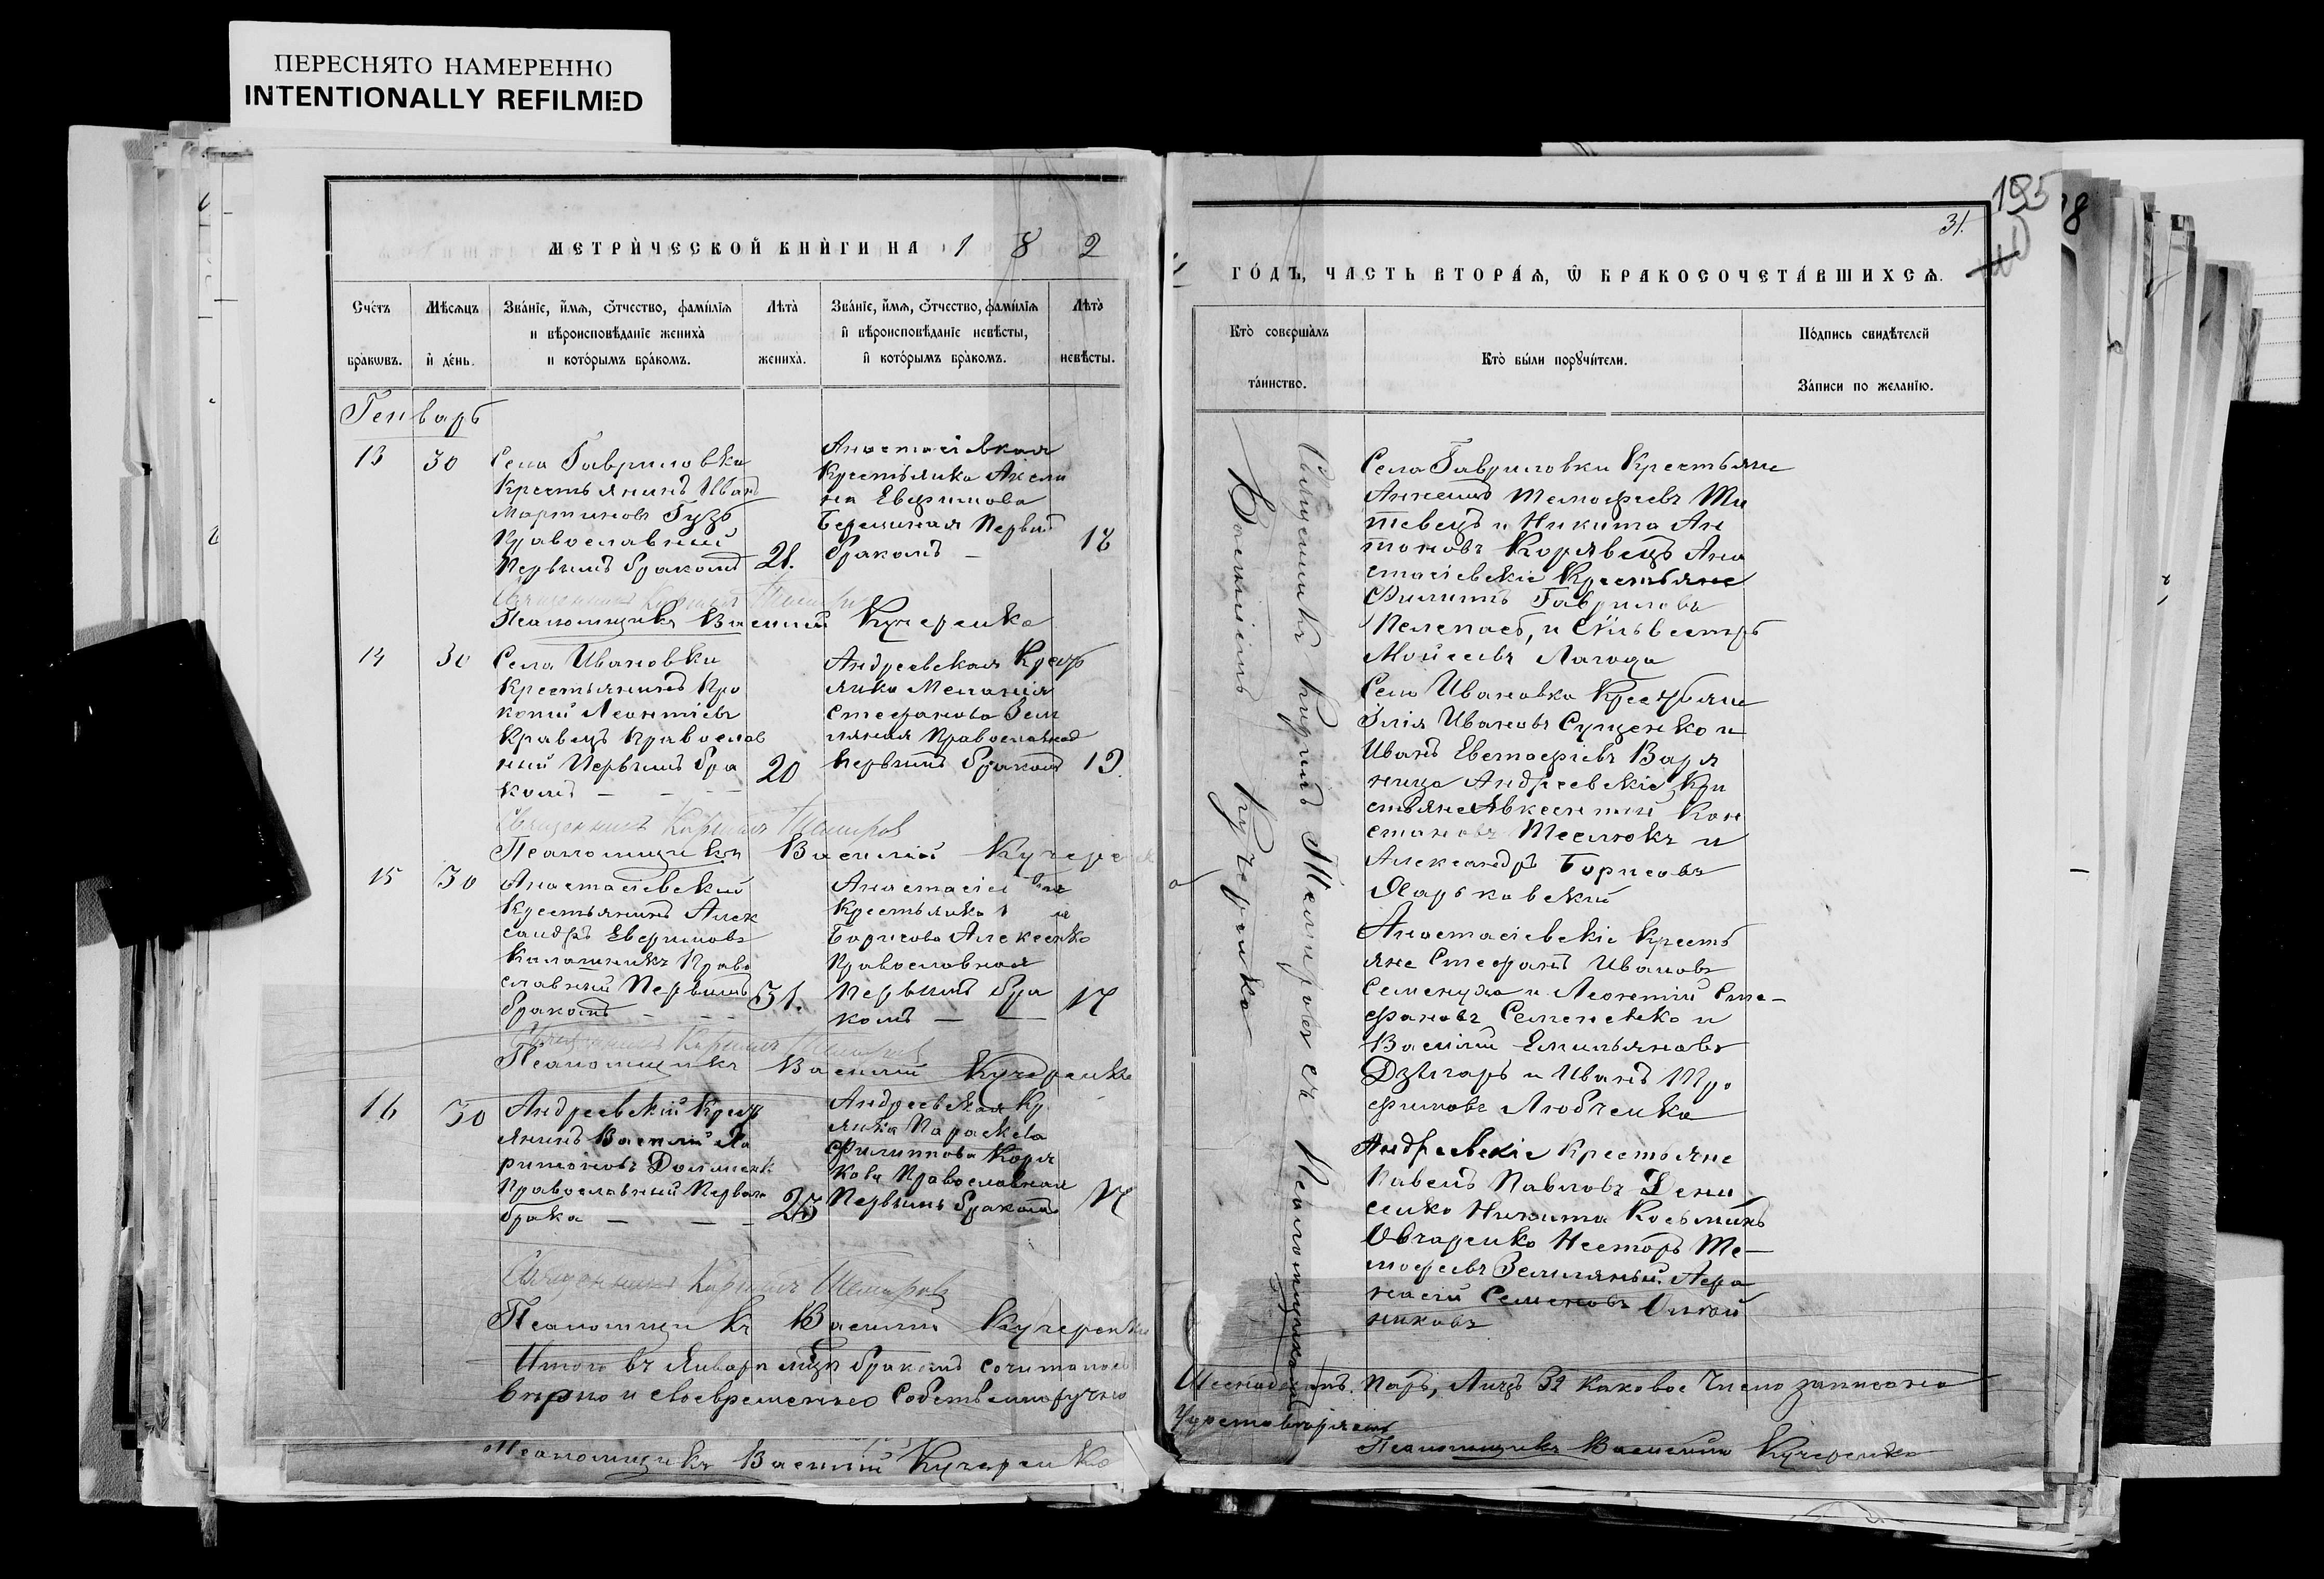 ПЕРЕСНЯТО НАМЕРЕННО
INTENTIONALLY REFILMED
МЕТРИ́ЧЕСКОЙ КНИ́ГИ НА 1 8 2
Сче́тъ бра́кωвъ.
Мѣ́сѧцъ и де́нь.
Зва́нїе, и́мѧ, ѻ҆́тчество, фами́лїѧ
и вѣроисповѣ́данїе жениха̀
и кото́рымъ бра́комъ.
Лѣ́та жениха̀.
Зва́нїе, и́мѧ, ѻ҆́тчество, фами́лїѧ
и҆ вѣроисповѣ́данїе невѣ́сты,
и҆ кото́рымъ бра́комъ.
Лѣ́та невѣ́сты.
Генварь
13
30
Села Гавриловка
Крестьянинъ Иванъ
Мартиновъ Гузь
Православный
Первымъ бракомъ
21.
Анастасіевкая
Крестьянка Акели
на Ефимова
Первым
бракомъ —
18
Псаломщикъ Василий Кучеренко
14
30
Села Ивановки
Крестьянинъ Про
копий Леонтіевъ
Кравецъ Православ
ный Первымъ бра
комъ — — —
20
Андреевская Крест
янка Меланія
Стефанова Зем
ляная Православная
первымъ бракомъ
19.
Псаломщикъ Василій Кучерен
15
30
Анастасіевский
Крестьянинъ Алек
сандръ Ефимовъ
Калашникъ Право
славный Первымъ
бракомъ — — —
31.
Крестьянка
Борисова Алексенко
Православная
Первымъ бра
комъ — —
17
Псаломщикъ Василий Кучеренко
16
30
Андреевский Крест
янинъ Василий Ла
ріоновъ
Православный Перваго
брака — — —
25
Андреевская Кр
янка Параскева
Филиппова Коря
кова Православная
Первымъ бракомъ
17
Священникъ Кириллъ
Псаломщикъ Василий Кучеренко
Итого въ Январѣ мцѣ бракомъ сочиталось
вѣрно и своевременно Собственоручно
Псаломщикъ Василій Кучеренко
195
31.
ГО́ДЪ, ЧАСТЬ ВТОРА́Ѧ, Ѽ БРАКОСОЧЕТА́ВШИХСѦ.
Кто̀ соверша́лъ
та́инство.
Кто̀ бы́ли порꙋчи́тели.
По́дпись свидѣ́телей
За́писи по жела́нїю.
Села Гавриловки Крестьяне
Тимофеевъ Ти
товецъ и Никита Ан
тоновъ Корявецъ Ана
стасіевскіе Крестьяне
Филипъ Гавриловъ
Пелепасъ, и Сильвестръ
Мойсеевъ Лагода
Села Ивановка Крестьяне
Ілія Ивановъ Сущенко и
Иванъ Евстафіевъ Варя
ница Андреевскіе Кри
стьяне Авксентий Кон
становъ Теслюкъ и
Александръ Борисовъ
Харьковский
Анастасіевскіе Кресть
яне Стефанъ Ивановъ
Семенуха и Леонтий Сте-
фановъ Семененко и
Василий Емильяновъ
Дзыгарь и Иванъ Тро
фимовъ Любченко
Андреевскіе Крестьяне
Павелъ Павловъ Дени
сенко Никита Косьминъ
Овчаренко Несторъ Ти-
мофеевъ Земляный. Афа
насий Семеновъ
никовъ
Священникъ Кирилъ съ Псаломщикомъ
Василіемъ Кучеренко
Шеснадцать. паръ, Лицъ 32 каковое Число записано
Псаломщикъ Василий Кучеренко